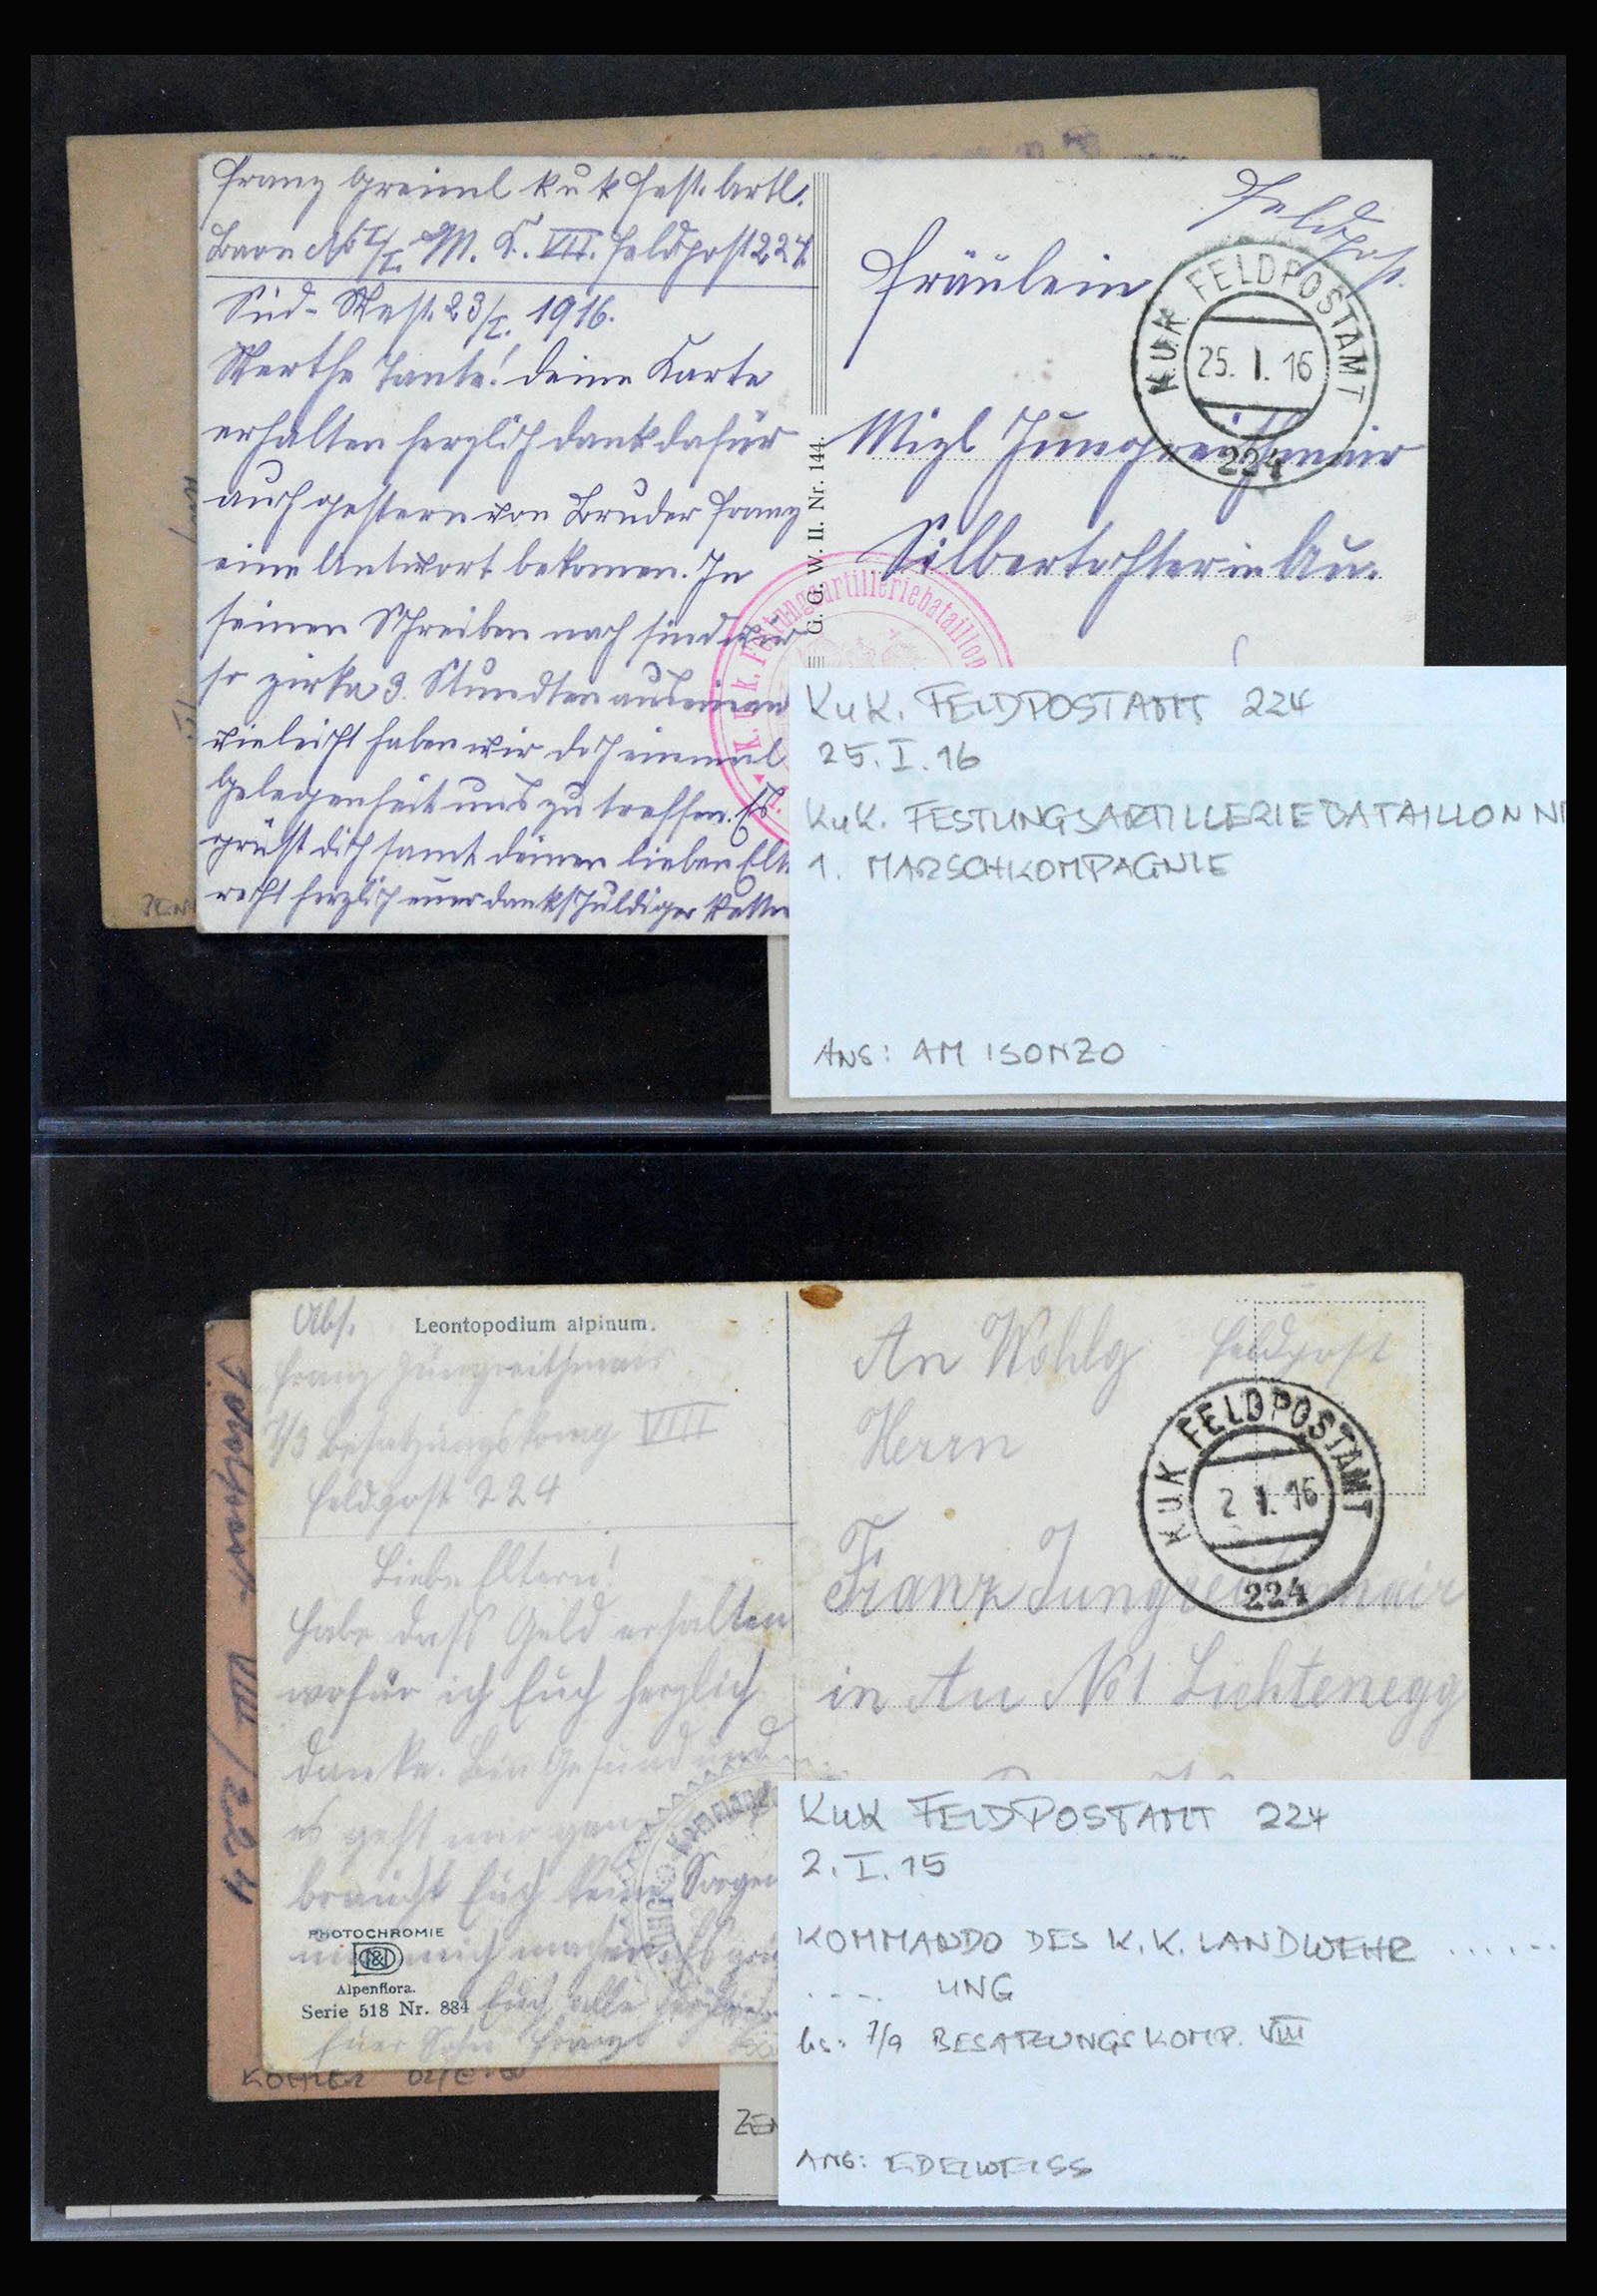 Franz Greiml k u k Fest. Artl.
Baon No I/I. M. K. VII. Feldpost 224.
Süd-West. 23/I. 1916.
Werthe Tante! deine Karte
erhalten herzlich dank dafür
auch gestern von Bruder Franz
eine Antwort bekomen. In
seinen Schreiben nach sind wir
so zirka 3. Stundten auseinan
vieleicht haben wir doch einmal
Gelegenheit uns zu treffen. Es
grüßt dich samt deinen lieben Elt
recht herzlich euer dankschuldiger Vetter
G. G. W. II. Nr. 144.
Feldpost.
Fräulein
K.U.K. FELDPOSTAMT
25. I. 16
224
Mizl Jungreithmair
Silbertochter in Au.
K. u. k. Festungsartilleriebataillon
KuK. FELDPOSTAMT 224
25. I. 16
KuK. FESTUNGSARTILLERIEBATAILLON NR
1. MARSCHKOMPAGNIE
ANS: AM ISONZO
ZEN
Abs.
Leontopodium alpinum.
Franz Jungreithmair
7/3 Besatzungskomp VIII
Feldpost 224
Liebe Eltern!
Habe dass Geld erhalten
wofür ich Euch herzlich
danke. Bin Gesund und
es geht mir ganz
braucht Euch keine Sorgen
mich machen. Es
Euch alle herzlich
Euer Sohn Franz
PHOTOCHROMIE
Alpenflora.
Serie 518 Nr. 884
An Wohlg
Feldpost
Herrn
KUK FELDPOSTAMT
2 I. 16
224
Franz Jungreithmair
in Au No 1 Lichtenegg
Kommando
KuK FELDPOSTAMT 224
2. I. 15
KOMMANDO DES K.K. LANDWEHR ......
.... UNG
hs: 7/9 BESATZUNGSKOMP. VIII
ANS: EDELWEISS
VIII / 224
KOHLER
ZEN